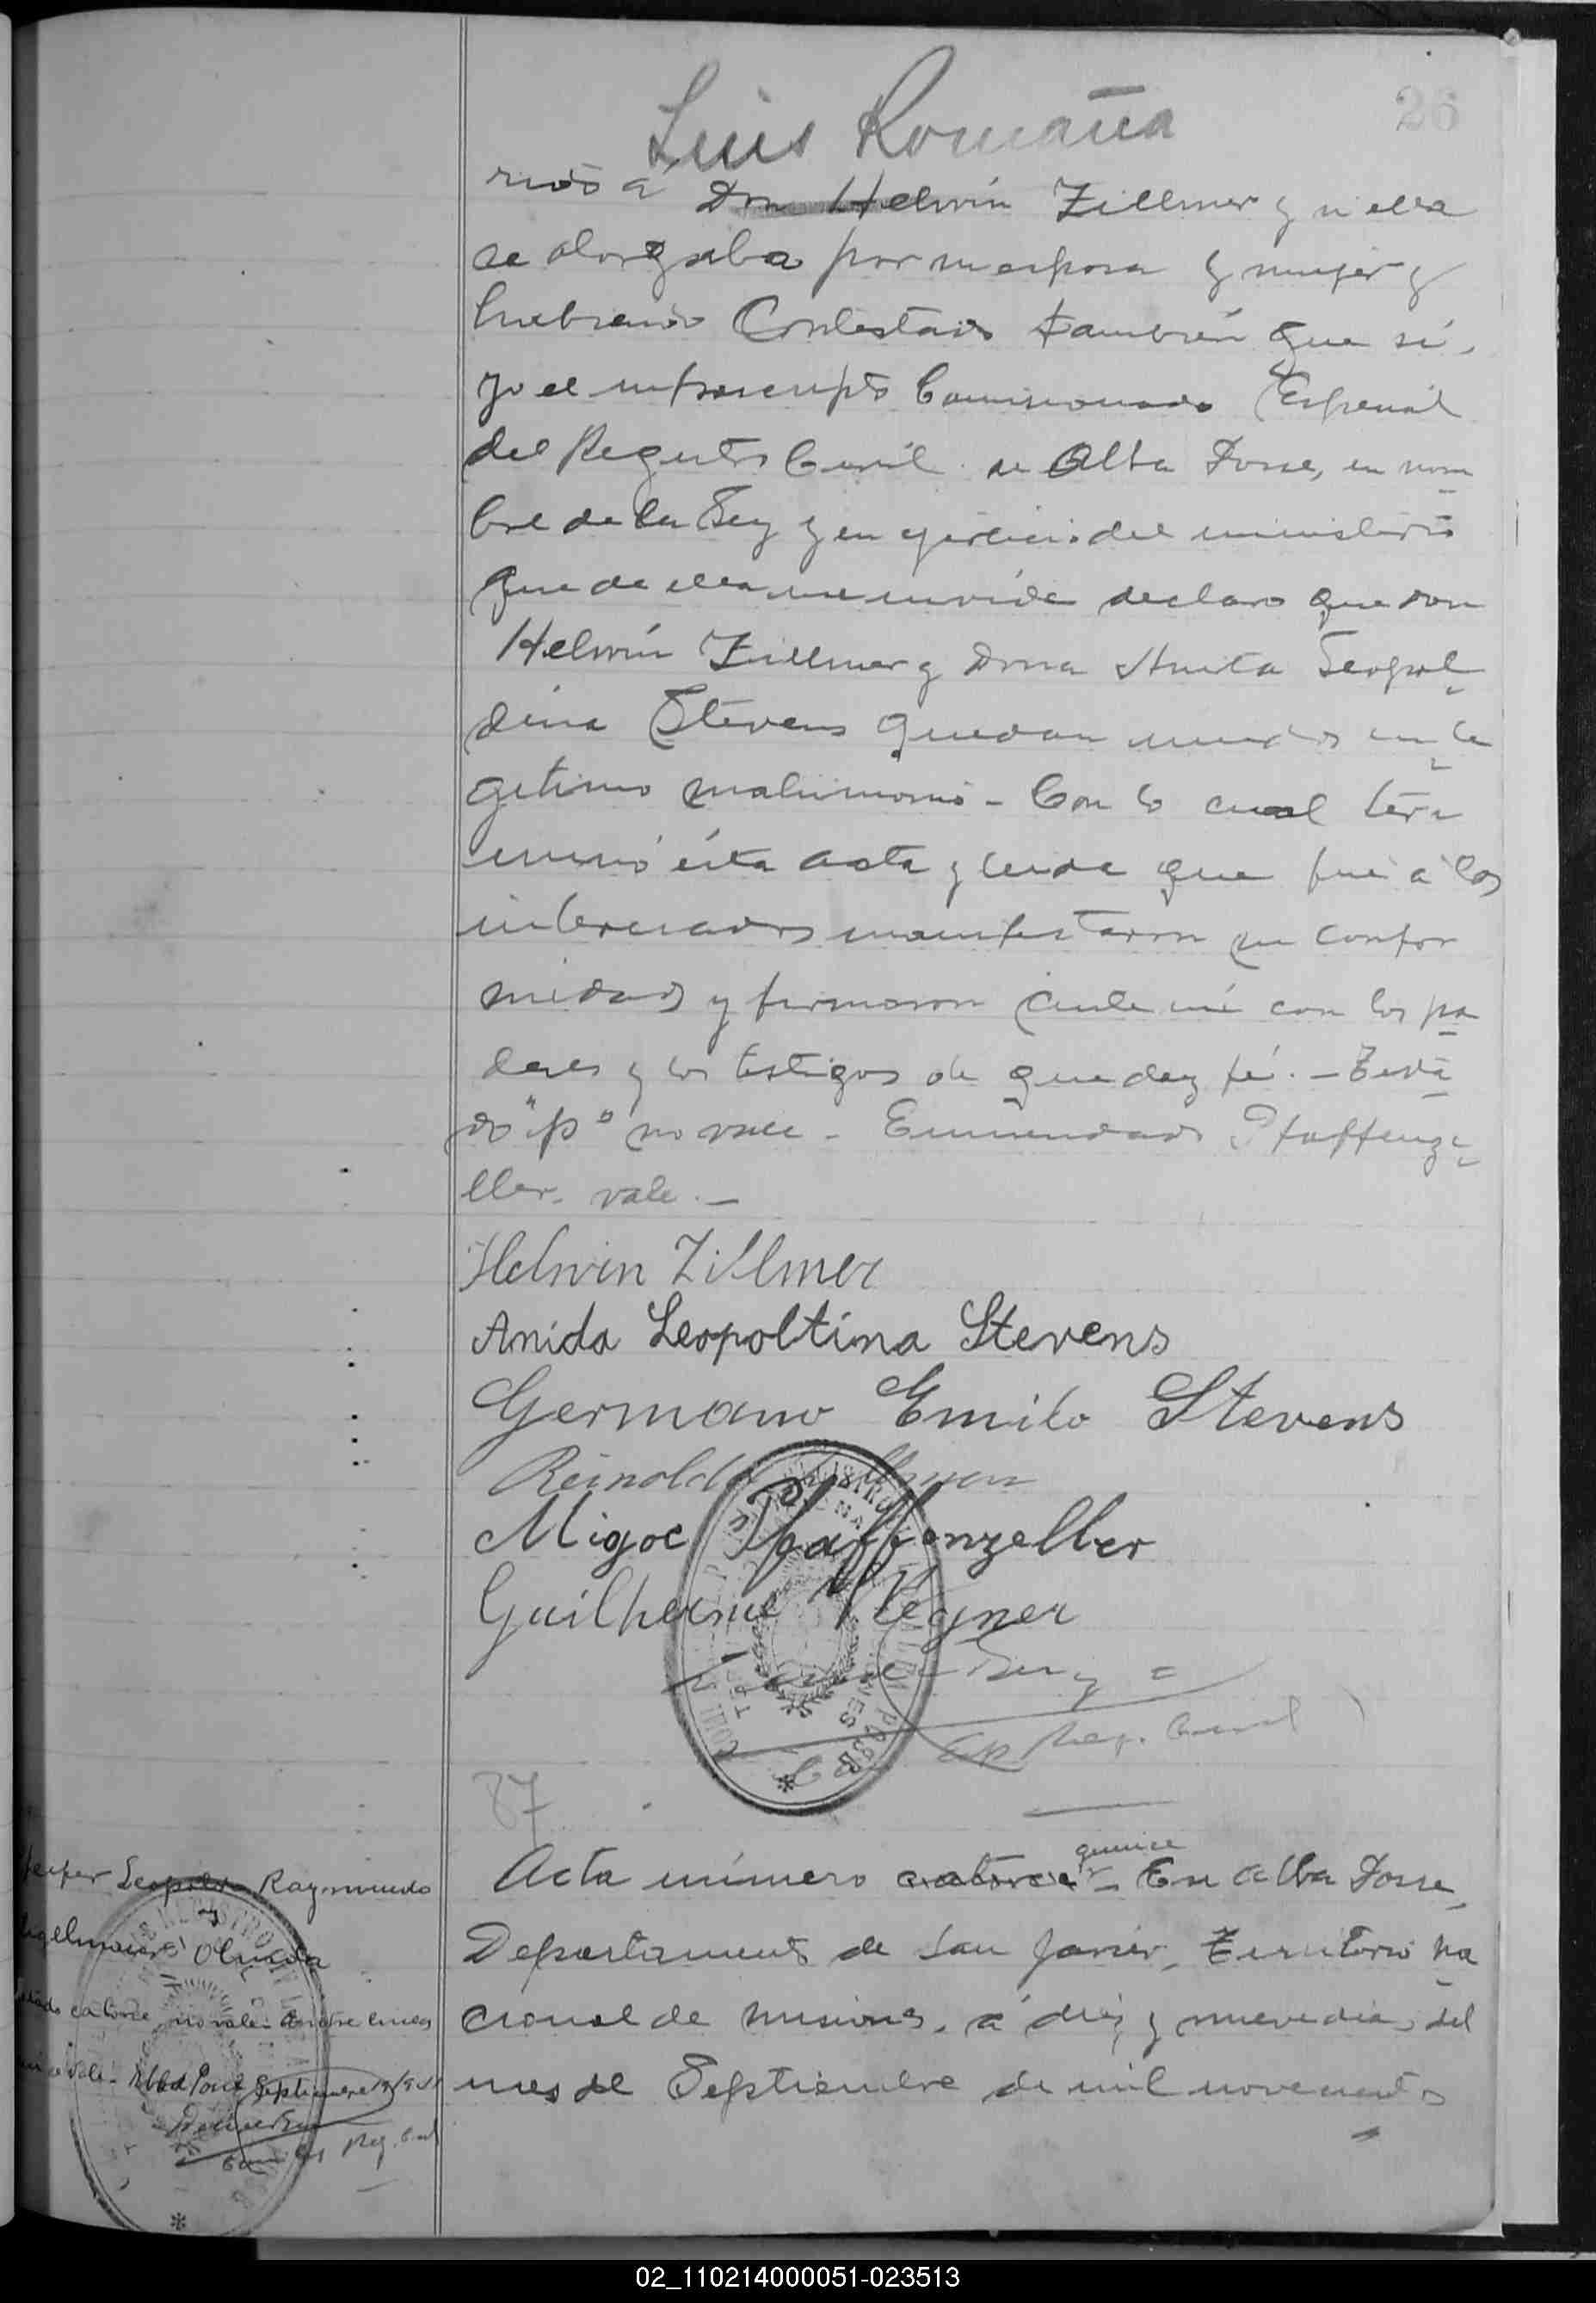 26
Luis Romaña
rido á Don Helvín Zillmer y si ella
se otorgaba por su esposa y mujer y
habiendo contestado también que sí,
yo el infrascripto Comisionado Especial
del Registro Civil de Alba Posse, en nom
bre de la Ley y en ejercicio del ministerio
que de ella me inviste declaro que don
Helvín Zillmer y Doña Anita Leopol
dina Stevens quedan unidos en le
gitimo matrimonio - Con lo cual ter
minó ésta acta y leida que fué á los
interesados manifestaron su confor
midad y firmaron ante mí con los pa
dres y los testigos de que doy fé. - Testa
do "p" no vale - Enmendado Pfaffenze
ller. vale. -
Helwin Zillmer
Anida Leopoltina Stevens
Germano Emilo Stevens
Reinoldo Zillmer
Pfaffenzeller
Guilherme Wegner
Reg. Civil
87
quince
Acta número catorce - En Alba Posse,
Departamento de San Javier, Territorio Na
cional de Misiones, á diez y nueve dias del
mes de Septiembre de mil novecientos
Leopoldo Raymundo
y
Olinda
catorce, no vale. Entre lineas
vale - Alba Posse Septiembre 19/9
Reg. Civil
02_110214000051-023513